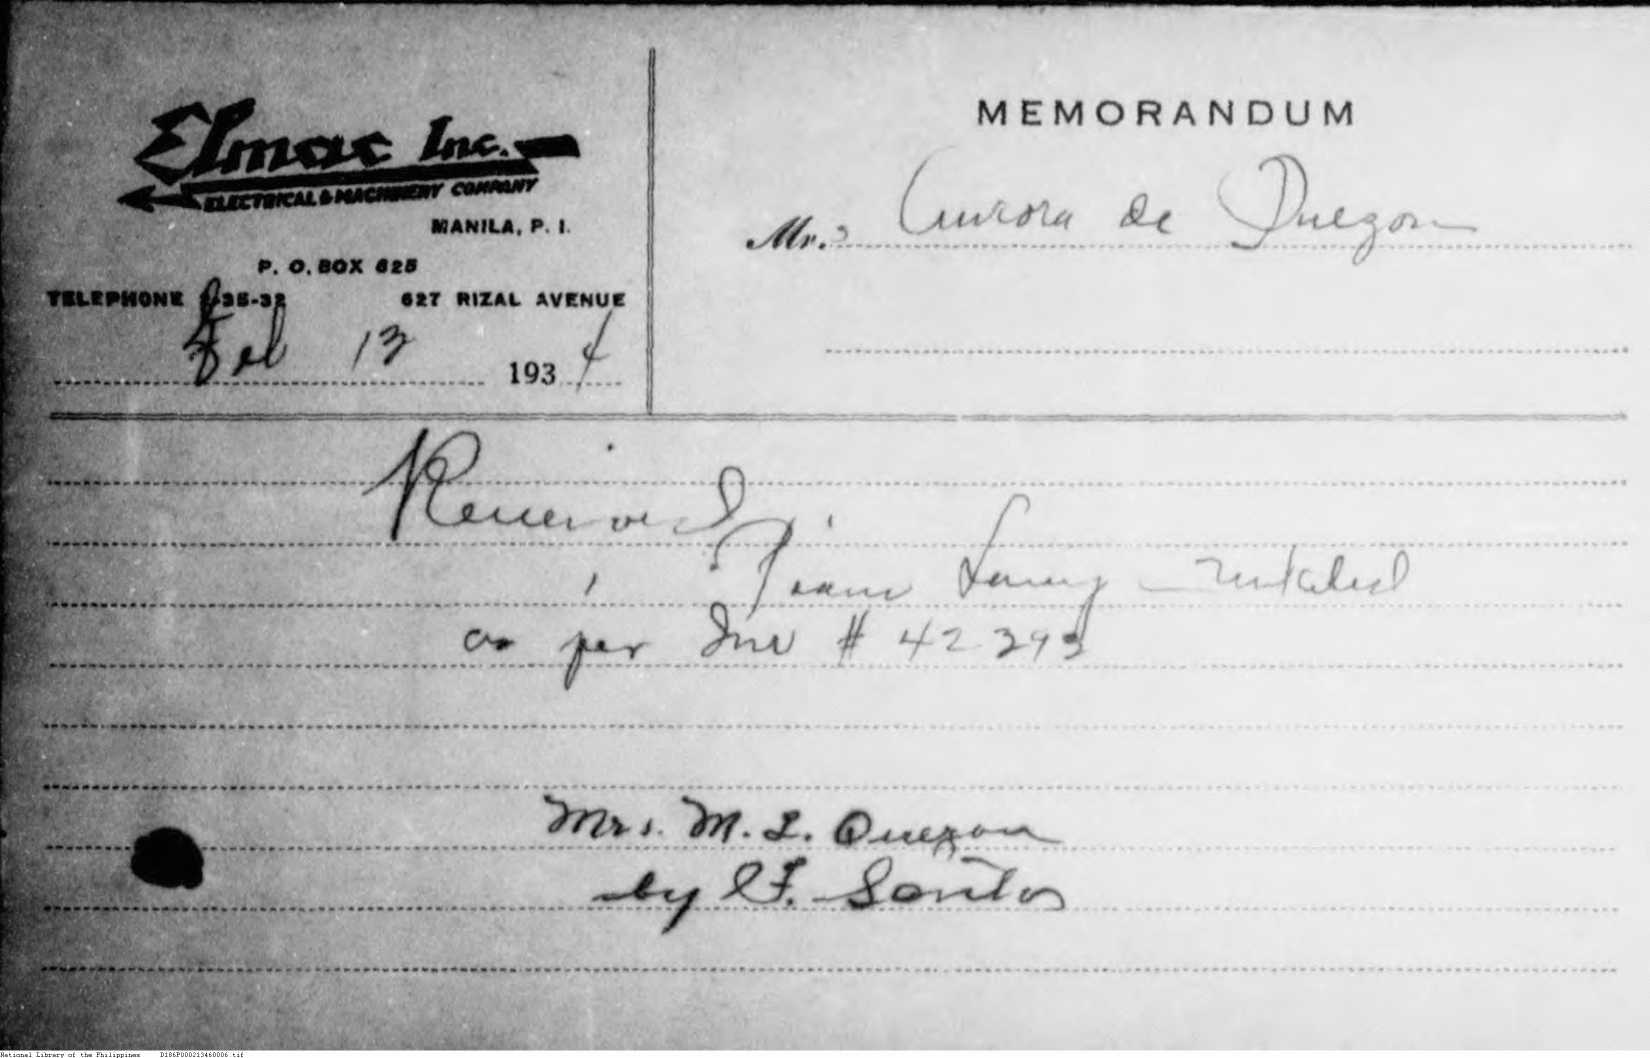 Elmac Inc.
ELECTRICAL & MACHINERY COMPANY
MANILA, P. I.
P. O. BOX 625
TELEPHONE 35-32 627 RIZAL AVENUE
Feb 13 1934
MEMORANDUM
Mrs Aurora de Quezon
Received
1
as per Inv # 42393
Mrs. M. L. Quezon
by F. Santos
National Library of the Philippines D186P000213460006.tif